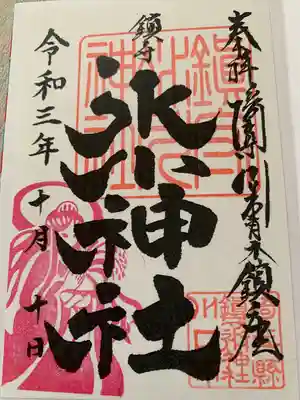 奉拝 川口青木鎮座
鎮守
氷川神社
令和三年 十月 十日
鎮守氷川神社